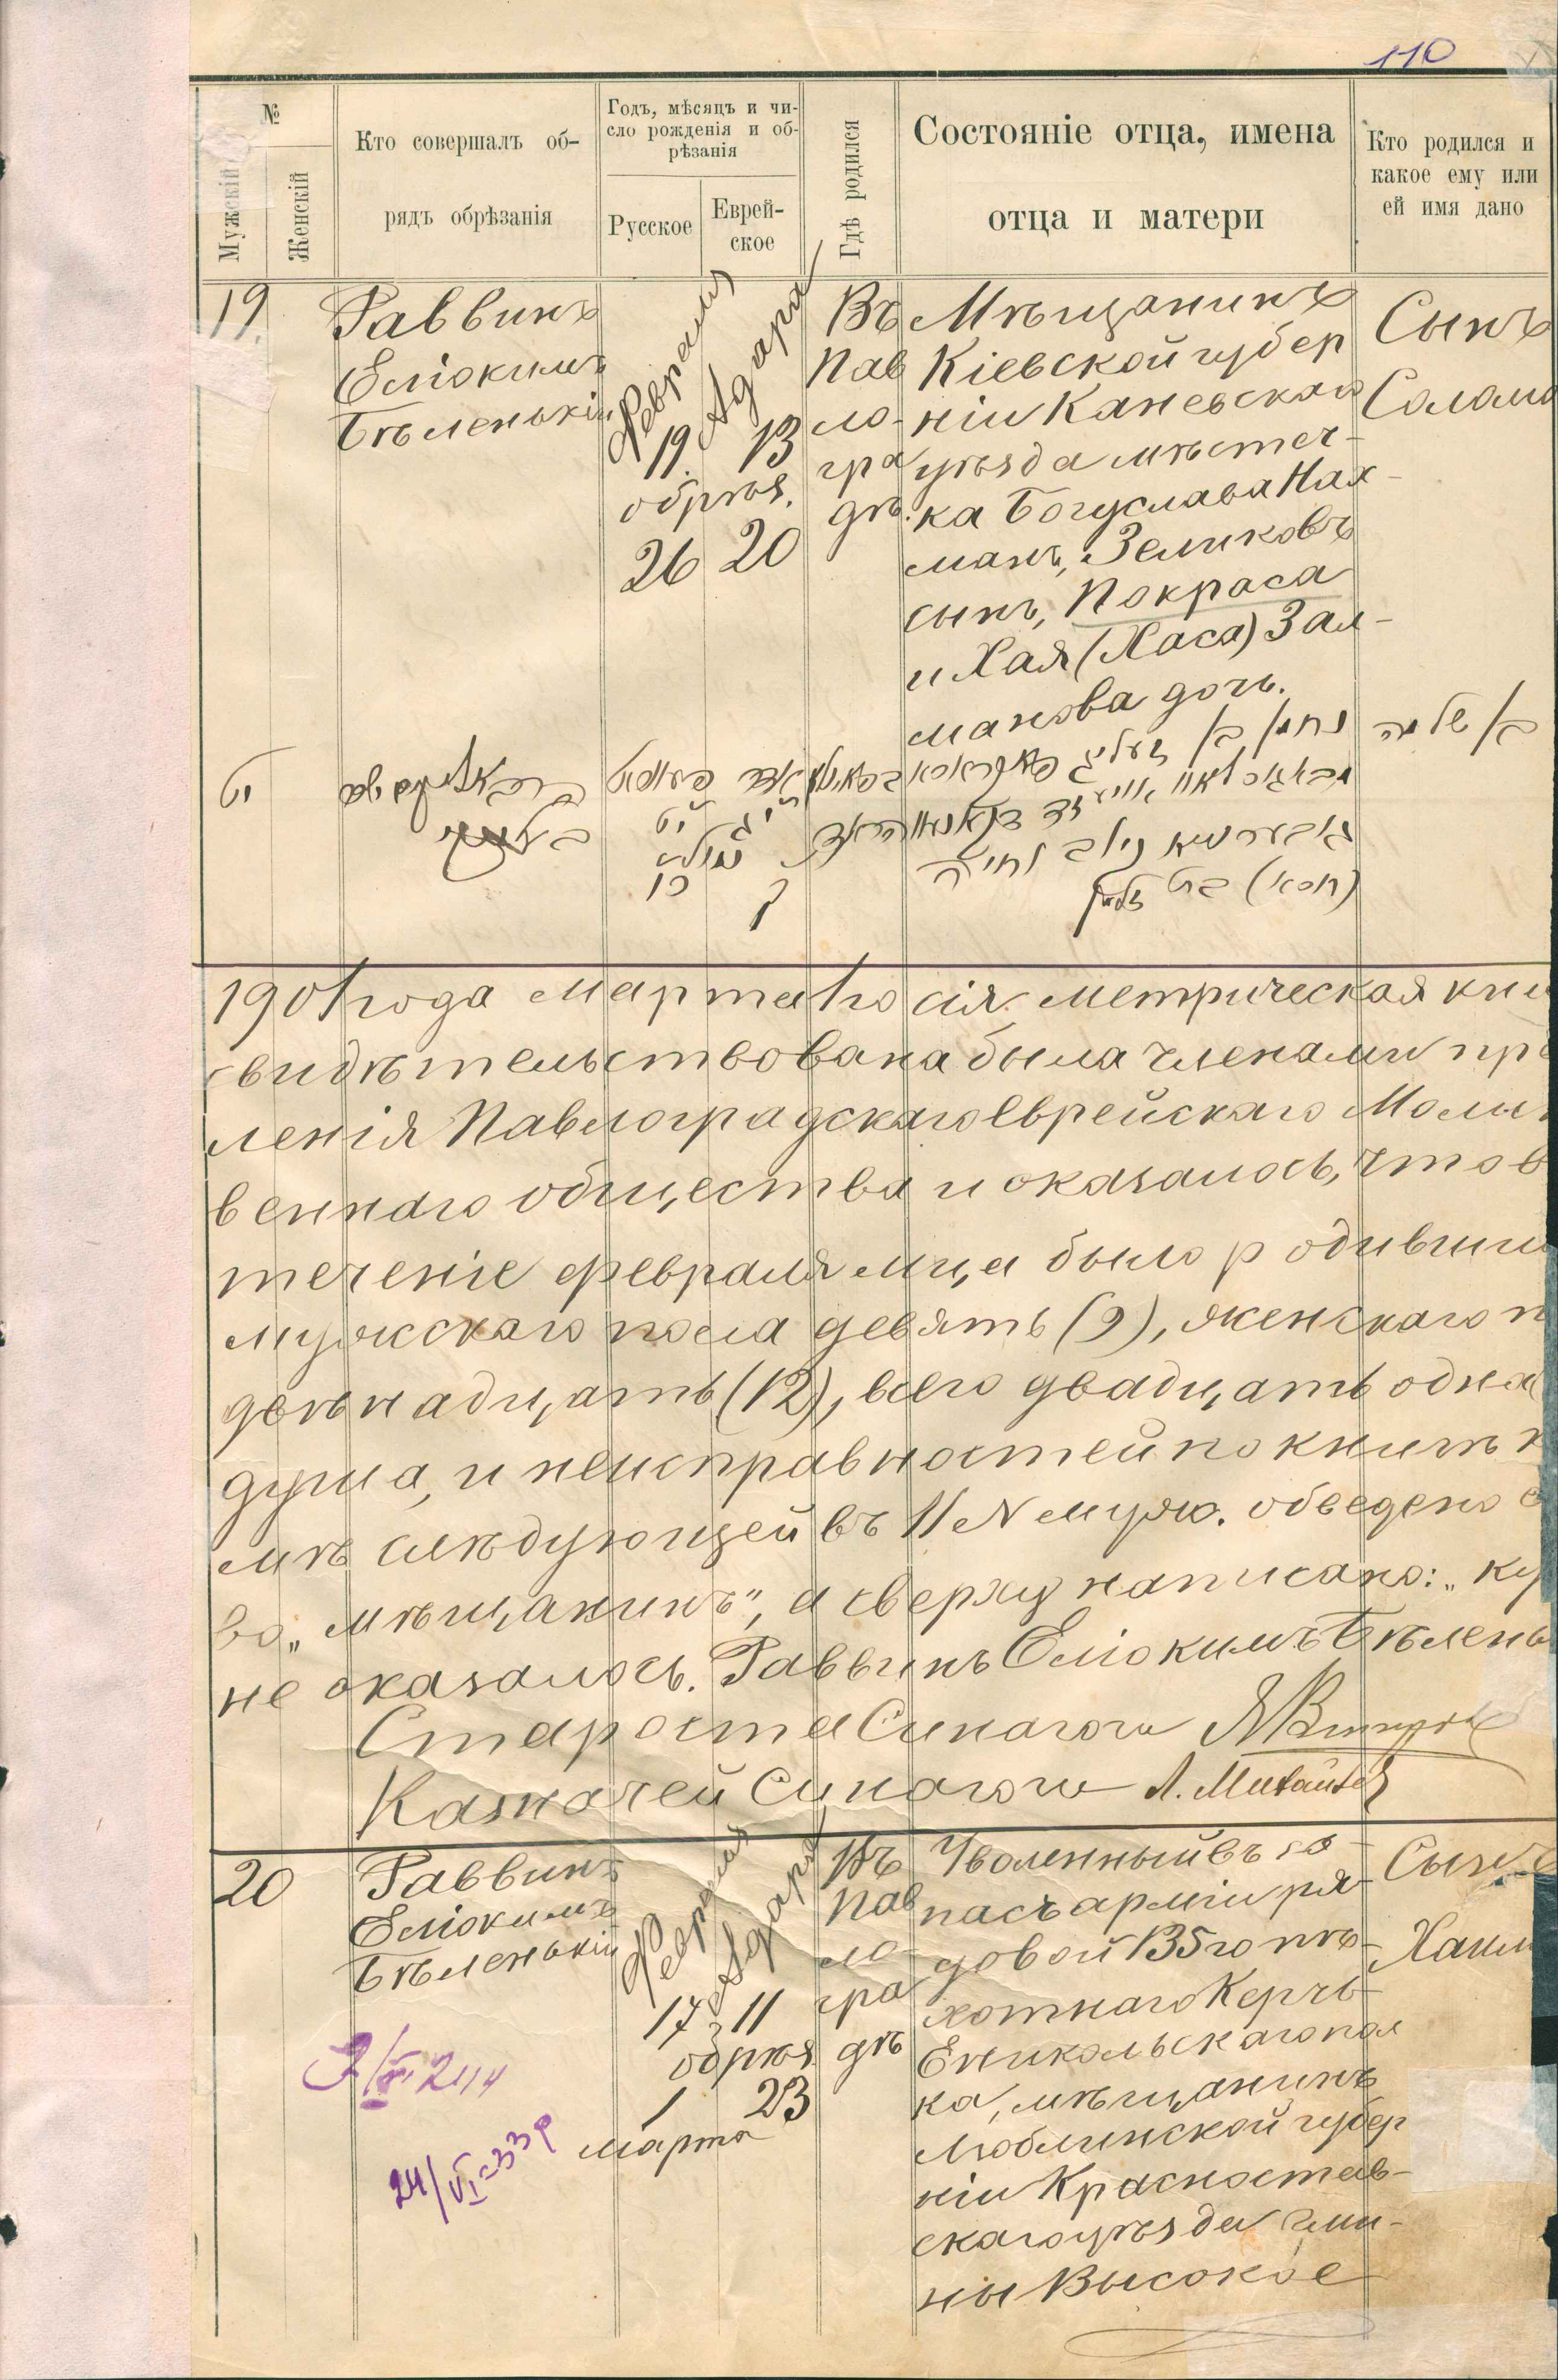 110
№
Мужскій
Женскій
Кто совершалъ об-
рядъ обрѣзанія
Годъ, мѣсяцъ и чи-
сло рожденія и об-
рѣзанія
Русское
Еврей-
ское
Гдѣ родился
Состояніе отца, имена
отца и матери
Кто родился и
какое ему или
ей имя дано
19
Раввинъ
Еліокимъ
Бѣленькій
Февраля
19.
Адара
13
обрѣз.
26 20
Въ
Пав
ло-
гра
дѣ.
Мѣщанинъ
Кіевской губер
ніи Каневскаго
уѣзда мѣстеч-
ка Богуслава Нах-
манъ, Зеликовъ
сынъ, Покраса
и Хая (Хаса) Зал-
манова дочь.
Сынъ
Соломо
1901 года марта 1го сія метрическая кни
свидѣтельствована была членами пра
ленія Павлоградскаго Еврейскаго Молит
веннаго общества и оказалось, что в
теченіе февраля мца было родивши
мужскаго пола девять (9), женскаго п
двѣнадцать (12), всего двадцать одна
душа, и неисправностей по книгѣ к
мѣ слѣдующей въ 11 N муж. обведено с
во „мѣщанинъ“, а сверху написано: „ку
не оказалось. Раввинъ Еліокимъ Бѣлень
Староста Синагоги
Казначей Синагоги
20
Раввинъ
Еліокимъ
Бѣленькій
Февраля
17
Адара
11
обрѣз.
1 23
марта
Въ
Пав
ло-
гра
дѣ
Уволенный въ за-
пасъ арміи ря-
довой 135го пѣ-
хотнаго Керчь-
Еникольскаго пол
ка, мѣщанинъ
Люблинской губер
ніи Красностав-
скаго уѣзда гми-
ны Высокое
Сынъ
Хаим
24/VI-33 р